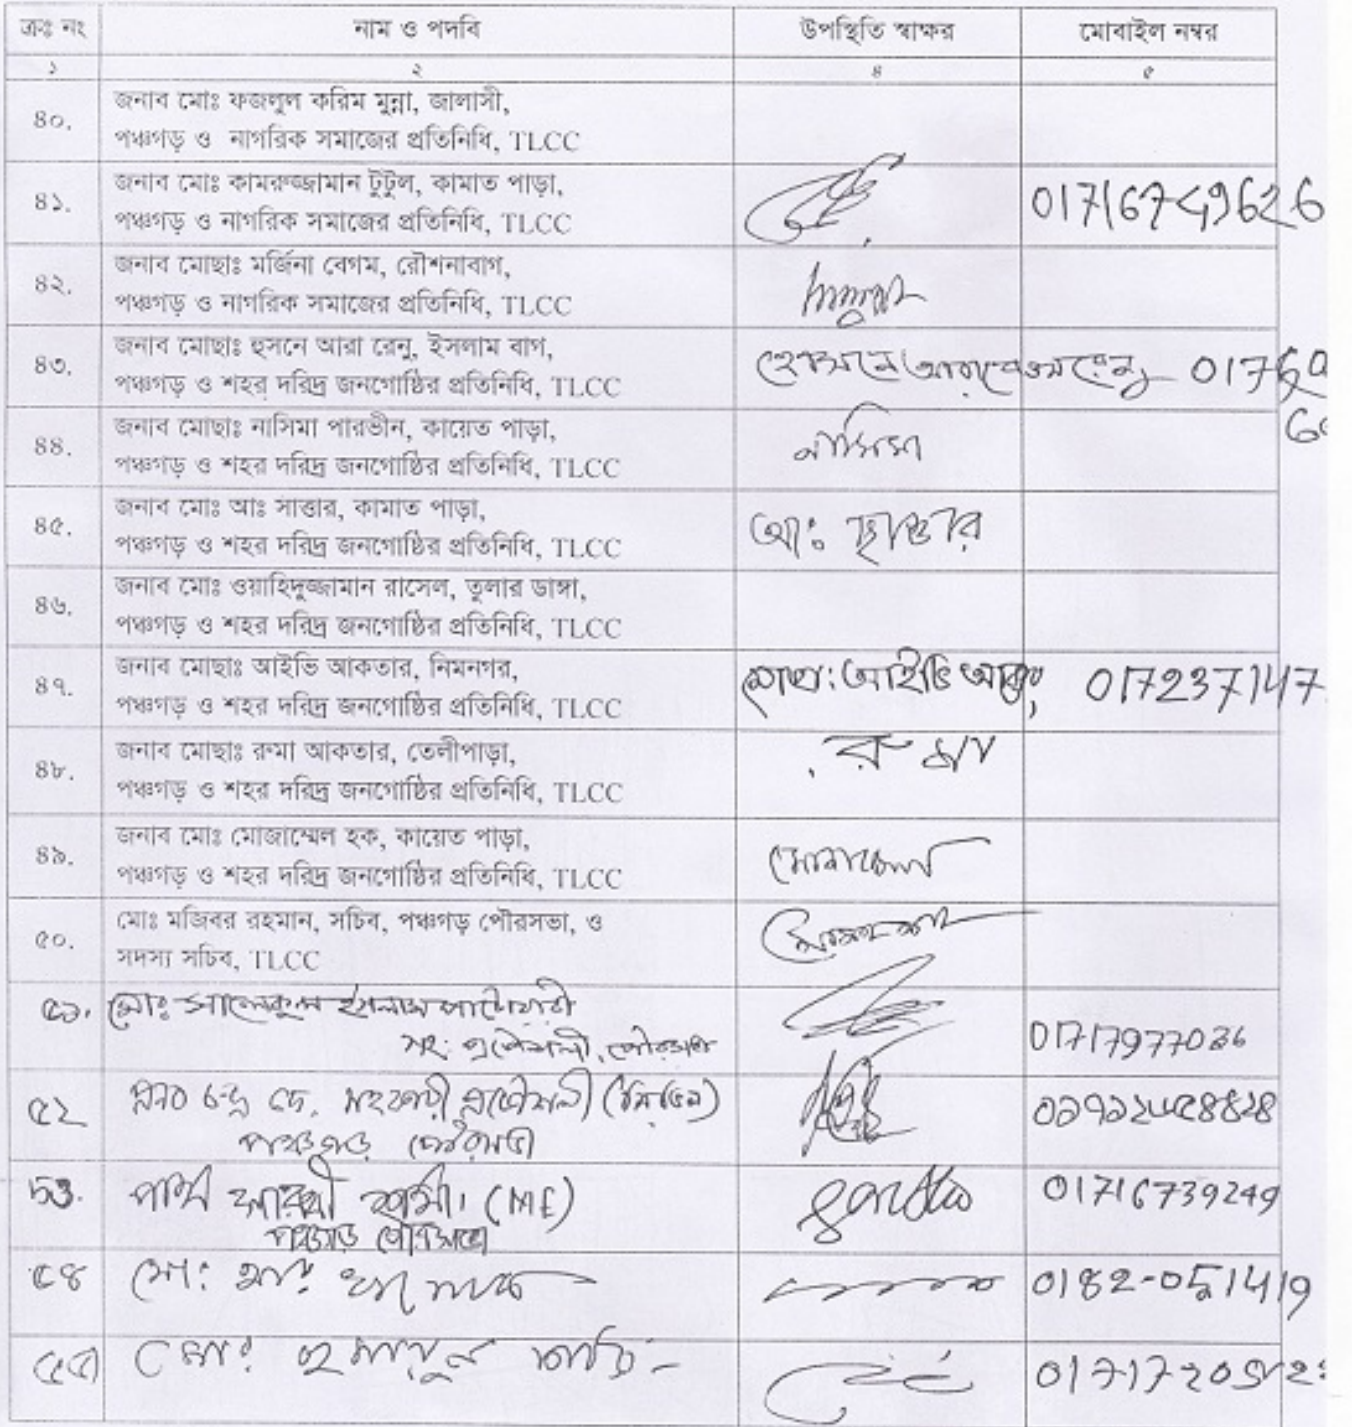 ক্রঃ নং নাম ও পদবি উপস্থিতি স্বাক্ষর মোবাইল নম্বর
১ ২ ৪ ৫
৪০. জনাব মোঃ ফজলুল করিম মুন্না, জালাসী,
পঞ্চগড় ও নাগরিক সমাজের প্রতিনিধি, TLCC
৪১. জনাব মোঃ কামরুজ্জামান টুটুল, কামাত পাড়া,
পঞ্চগড় ও নাগরিক সমাজের প্রতিনিধি, TLCC 01716749626
৪২. জনাব মোছাঃ মর্জিনা বেগম, রৌশনাবাগ,
পঞ্চগড় ও নাগরিক সমাজের প্রতিনিধি, TLCC
৪৩. জনাব মোছাঃ হুসনে আরা রেনু, ইসলাম বাগ,
পঞ্চগড় ও শহর দরিদ্র জনগোষ্ঠির প্রতিনিধি, TLCC
৪৪. জনাব মোছাঃ নাসিমা পারভীন, কায়েত পাড়া,
পঞ্চগড় ও শহর দরিদ্র জনগোষ্ঠির প্রতিনিধি, TLCC নাসিমা
৪৫. জনাব মোঃ আঃ সাত্তার, কামাত পাড়া,
পঞ্চগড় ও শহর দরিদ্র জনগোষ্ঠির প্রতিনিধি, TLCC আঃ ছাত্তার
৪৬. জনাব মোঃ ওয়াহিদুজ্জামান রাসেল, তুলার ডাঙ্গা,
পঞ্চগড় ও শহর দরিদ্র জনগোষ্ঠির প্রতিনিধি, TLCC
৪৭. জনাব মোছাঃ আইভি আকতার, নিমনগর,
পঞ্চগড় ও শহর দরিদ্র জনগোষ্ঠির প্রতিনিধি, TLCC মোছাঃ আইভি 0172371147
৪৮. জনাব মোছাঃ রুমা আকতার, তেলীপাড়া,
পঞ্চগড় ও শহর দরিদ্র জনগোষ্ঠির প্রতিনিধি, TLCC রুমা
৪৯. জনাব মোঃ মোজাম্মেল হক, কায়েত পাড়া,
পঞ্চগড় ও শহর দরিদ্র জনগোষ্ঠির প্রতিনিধি, TLCC
৫০. মোঃ মজিবর রহমান, সচিব, পঞ্চগড় পৌরসভা, ও
সদস্য সচিব, TLCC
৫১. মোঃ সালেকুল ইসলাম পাটোয়ারী
সহ: প্রকৌশলী, পৌরসভা
৫২ চন্দ্র দে. সহকারী প্রকৌশলী (সিভিল)
পঞ্চগড় পৌরসভা
৫৩. (ME) 01716739249
পঞ্চগড় পৌরসভা
৫৪ মো: 0182-051419
৫৫ মোঃ হুমায়ুন